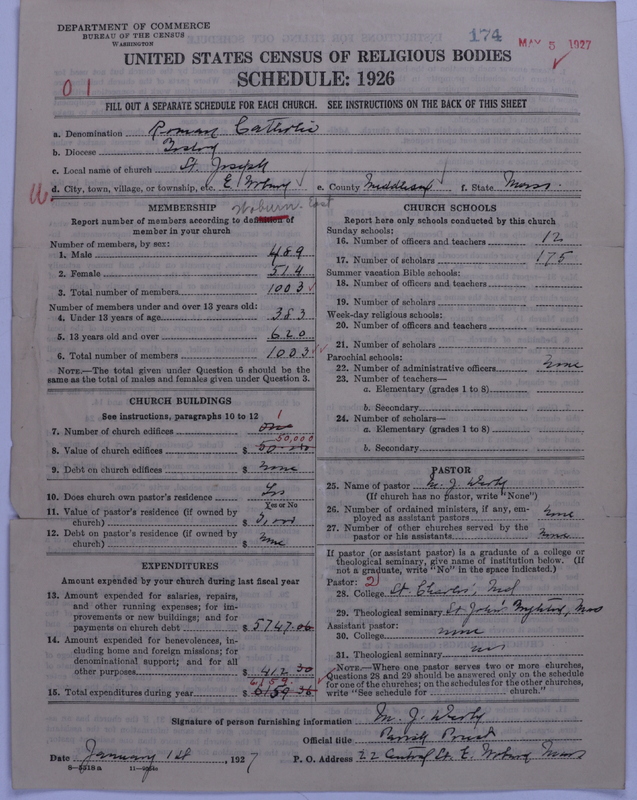 DEPARTMENT OF COMMERCE
BUREAU OF THE CENSUS
WASHINGTON
174
MAY 5 1927
UNITED STATES CENSUS OF RELIGIOUS BODIES
SCHEDULE: 1926
0 1
FILL OUT A SEPARATE SCHEDULE FOR EACH CHURCH. SEE INSTRUCTIONS ON THE BACK OF THIS SHEET
a. Denomination Roman Catholic
b. Diocese Boston
c. Local name of church St. Joseph
d. City, town, village, or township, etc. E. Woburn e. County Middlesex f. State Mass.
Woburn East
MEMBERSHIP
Report number of members according to definition of
member in your church
Number of members, by sex:
1. Male 489
2. Female 514
3. Total number of members 1003
Number of members under and over 13 years old:
4. Under 13 years of age 383
5. 13 years old and over 620
6. Total number of members 1003
NOTE.—The total given under Question 6 should be
same as the total of males and females given under Question 3.
CHURCH BUILDINGS
See instructions, paragraphs 10 to 12
1
7. Number of church edifices one
50,000
8. Value of church edifices $ 50.000
9. Debt on church edifices $ none
10. Does church own pastor's residence Yes
Yes or No
11. Value of pastor's residence (if owned by
church) $
12. Debt on pastor's residence (if owned by
church) $ none
EXPENDITURES
Amount expended by your church during last fiscal year
13. Amount expended for salaries, repairs,
and other running expenses; for im-
provements or new buildings; and for
payments on church debt $ 5747.06
14. Amount expended for benevolences, in-
cluding home and foreign missions; for
denominational support; and for all
other purposes $ 412 30
6159
15. Total expenditures during year $ 6159 36
CHURCH SCHOOLS
Report here only schools conducted by this church
Sunday schools:
16. Number of officers and teachers 12
17. Number of scholars 175
Summer vacation Bible schools:
18. Number of officers and teachers
19. Number of scholars
Week-day religious schools:
20. Number of officers and teachers
21. Number of scholars
Parochial schools:
22. Number of administrative officers none
23. Number of teachers—
a. Elementary (grades 1 to 8)
b. Secondary
24. Number of scholars—
a. Elementary (grades 1 to 8)
b. Secondary
PASTOR
25. Name of pastor M. J.
(If church has no pastor, write "None")
26. Number of ordained ministers, if any, em-
ployed as assistant pastors none
27. Number of other churches served by the
pastor or his assistants none
If pastor (or assistant pastor) is a graduate of a college or
theological seminary, give name of institution below. (If
not a graduate, write "No" in the space indicated.)
Pastor: 2
28. College St. Charles, Md
29. Theological seminary St John's Brighton, Mass
Assistant pastor:
30. College none
31. Theological seminary
NOTE.—Where one pastor serves two or more churches,
Questions 28 and 29 should be answered only on the schedule
for one of the churches; on the schedules for the other churches,
write "See schedule for church."
Signature of person furnishing information M. J.
Official title Parish Priest
Date January 1st, 1927 P. O. Address 22 Central St. E. Woburn Mass
8—5518a